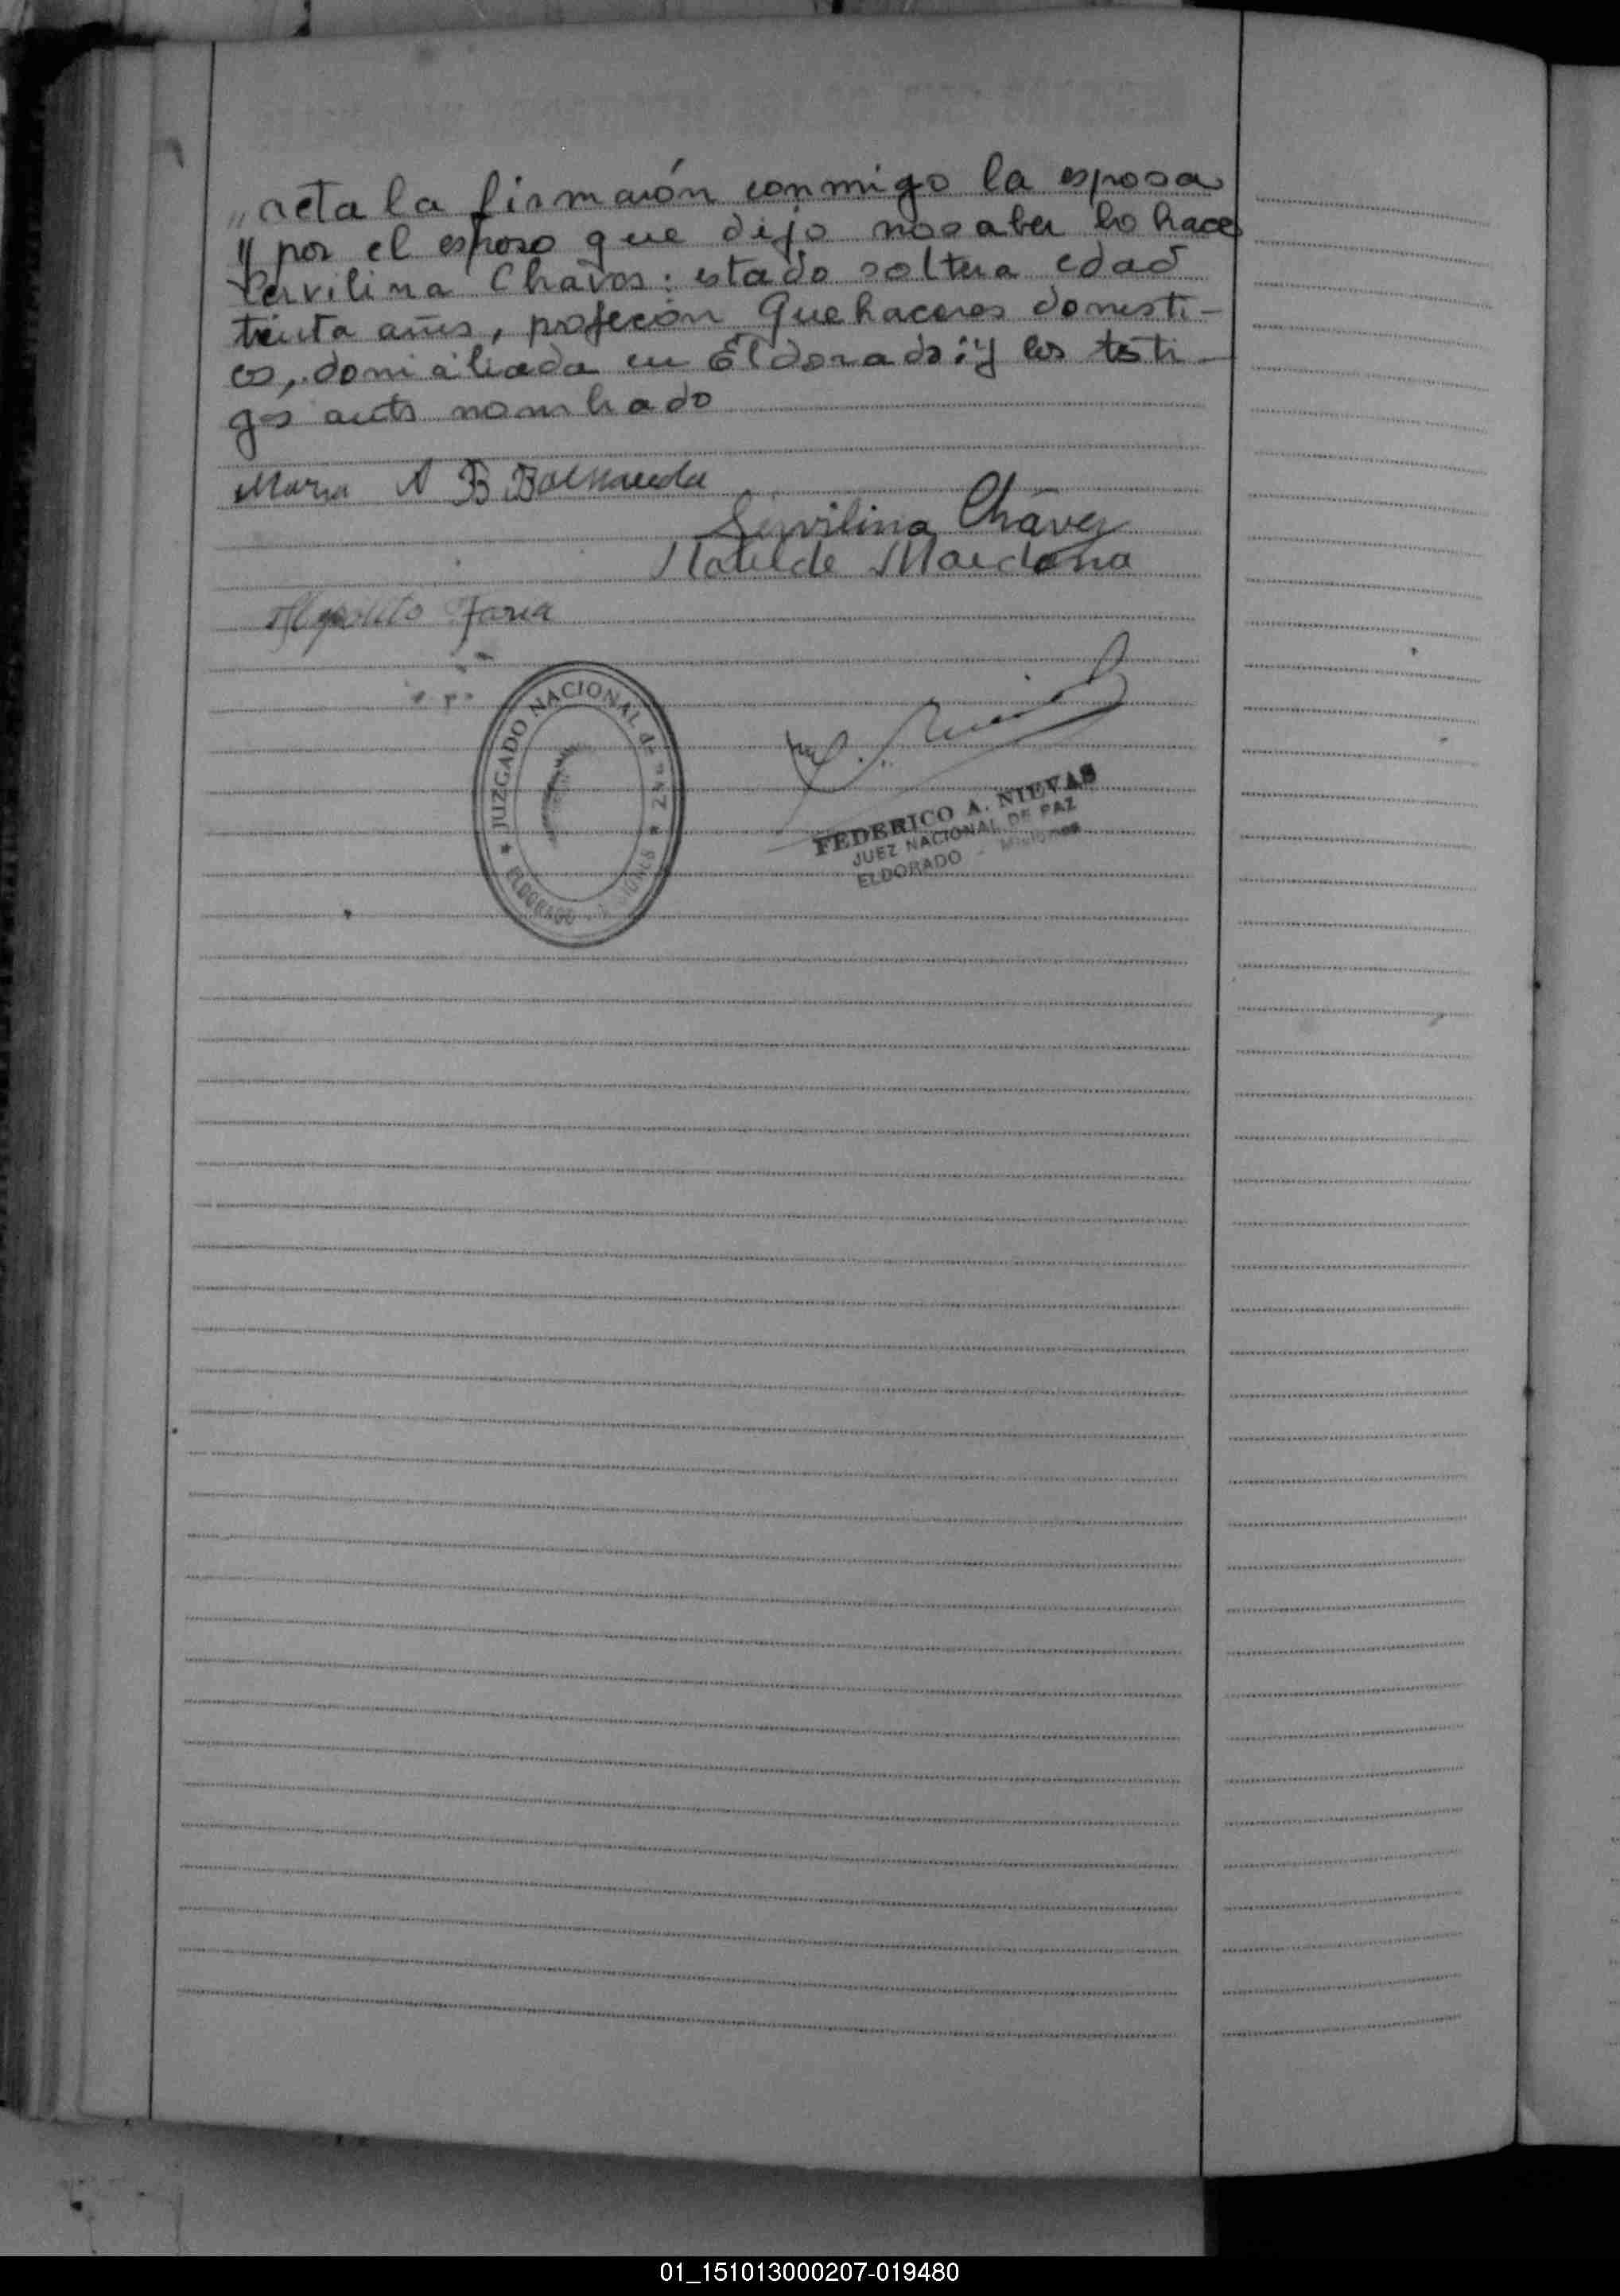 ,, acta la firmarón conmigo la esposa
y por el esposo que dijo no saber lo hace
Servilina Chaves: estado soltera edad
treinta años, profeción Quehaceres domesti-
cos, domiciliada en Eldorado; y los testi-
gos antes nombrado
Maria A B
Servilina Chávez
Matilde Maidana
Hipolito Faria
JUZGADO NACIONAL de PAZ
ELDORADO - MISIONES
FEDERICO A. NIEVAS
JUEZ NACIONAL DE PAZ
ELDORADO - Misiones
01_151013000207-019480